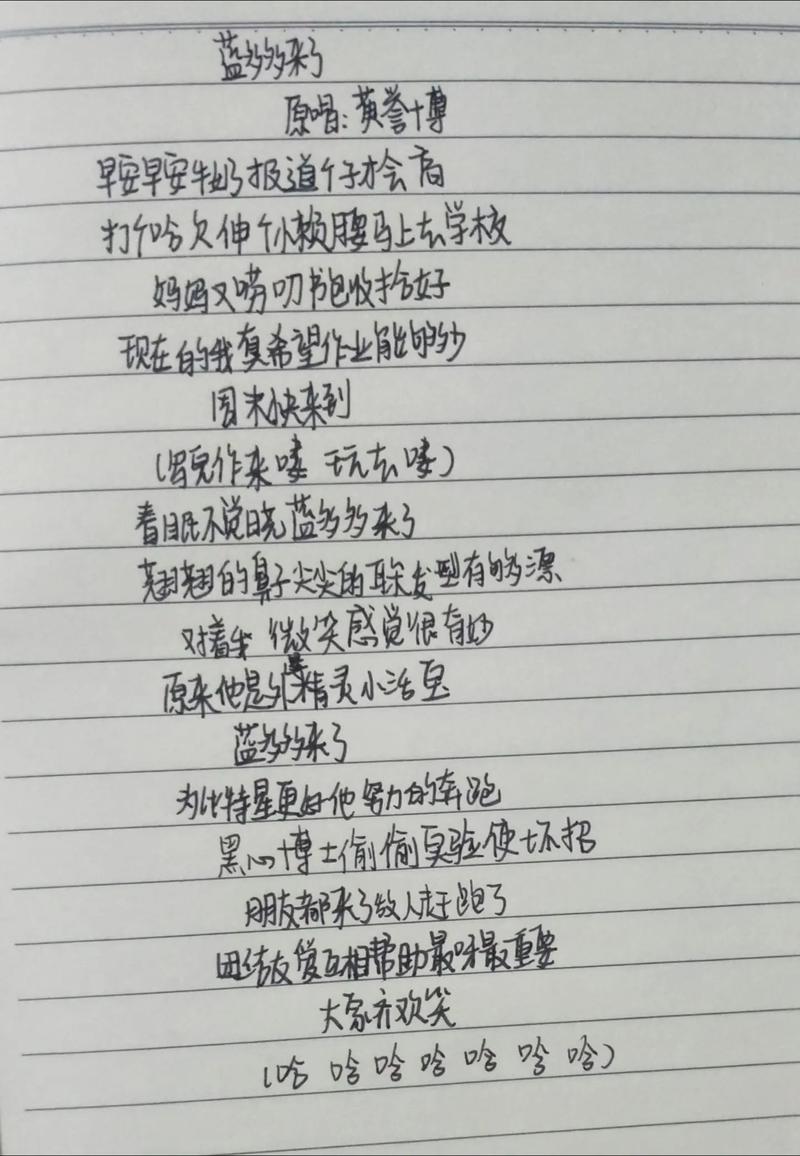 蓝多多来了
原唱：黄誉博
早安早安牛奶报道个子才会高
打个哈欠伸个小赖腰马上去学校
妈妈又唠叨书包收拾好
现在的我真希望作业能够少
周末快来到
(写完作来喽 玩去喽)
春眠不觉晓蓝多多来了
翘翘的鼻子尖尖的耳朵发型有够漂
对着我 微笑感觉很有妙
原来他是外星精灵小活宝
蓝多多来了
为比特星更好他努力的奔跑
黑心博士偷偷实验使坏招
朋友都来了敌人赶跑了
团结友爱互相帮助最呀最重要
大家齐欢笑
(哈 哈 哈 哈 哈 哈 哈)